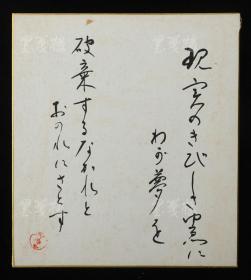 現実のきびしき中に
わが夢を
破棄するなかれと
おのれにさとす